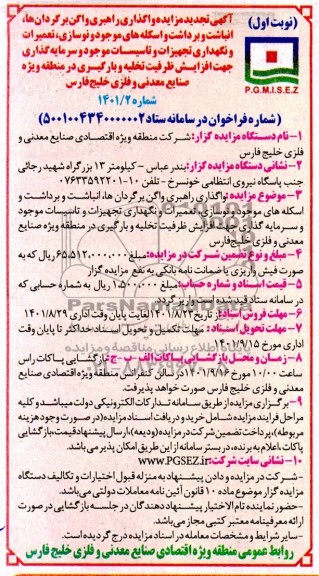 (نوبت اول)
P.G.M.I.S.E.Z
آگهی تجدید مزایده واگذاری راهبری واگن برگردان ها،
انباشت و برداشت و اسکله های موجود و نوسازی، تعمیرات
و نگهداری تجهیزات و تاسیسات موجود و سرمایه گذاری
جهت افزایش ظرفیت تخلیه و بارگیری در منطقه ویژه
صنایع معدنی و فلزی خلیج فارس
شماره ۱۴۰۱/۲
(شماره فراخوان در سامانه ستاد ۵۰۰۱۰۰۴۳۴۰۰۰۰۰۰۲)
۱- نام دستگاه مزایده گزار: شرکت منطقه ویژه اقتصادی صنایع معدنی و
فلزی خلیج فارس
۲- نشانی دستگاه مزایده گزار: بندرعباس - کیلومتر ۱۳ بزرگراه شهید رجائی
جنب پاسگاه نیروی انتظامی خونسرخ - تلفن ۱۰-۰۷۶۳۳۵۹۲۲۰۱
۳- موضوع مزایده: واگذاری راهبری واگن برگردان ها، انباشت و برداشت و
اسکله های موجود و نوسازی، تعمیرات و نگهداری تجهیزات و تاسیسات موجود
و سرمایه گذاری جهت افزایش ظرفیت تخلیه و بارگیری در منطقه ویژه صنایع
معدنی و فلزی خلیج فارس
۴- مبلغ و نوع تضمین شرکت در مزایده: مبلغ ۶۵،۵۱۲،۰۰۰،۰۰۰ ریال که به
صورت فیش واریزی یا ضمانت نامه بانکی به نفع مزایده گزار
۵- قیمت اسناد و شماره حساب: مبلغ ۱،۵۰۰،۰۰۰ ریال به شماره حسابی که
در سامانه ستاد قید شده است واریز گردد
۶- مهلت فروش اسناد: از تاریخ ۱۴۰۱/۸/۲۳ لغایت پایان وقت اداری ۱۴۰۱/۸/۲۹
۷- مهلت تحویل اسناد: مهلت تکمیل و تحویل اسناد حداکثر تا پایان وقت
اداری مورخ ۱۴۰۱/۹/۱۵
۸- زمان و محل بازگشایی پاکات الف - ب - ج: بازگشایی پاکات راس
ساعت ۱۰/۰۰ مورخ ۱۴۰۱/۹/۱۶ در سالن کنفرانس منطقه ویژه اقتصادی صنایع
معدنی و فلزی خلیج فارس صورت خواهد پذیرفت.
۹- برگزاری مزایده از طریق سامانه تدارکات الکترونیکی دولت میباشد و کلیه
مراحل فرایند مزایده شامل خرید و دریافت اسناد مزایده (در صورت وجود هزینه
مربوطه)، پرداخت تضمین شرکت در مزایده (ودیعه)، ارسال پیشنهاد قیمت، بازگشایی
پاکات، اعلام به برنده، در بستر سامانه از این طریق امکان پذیر می باشد.
۱۰- نشانی سایت شرکت: www.PGSEZ.ir
-شرکت در مزایده و دادن پیشنهاد به منزله قبول اختیارات و تکالیف دستگاه
مزایده گزار موضوع ماده ۱۰ قانون آئین نامه معاملات دولتی می باشد.
-حضور نماینده تام الاختیار پیشنهاد دهندگان در جلسه بازگشایی در صورت
ارائه معرفینامه معتبر کتبی مجاز می باشد.
-سایر شرایط و مشخصات معامله در اسناد مزایده درج گردیده است.
روابط عمومی منطقه ویژه اقتصادی صنایع معدنی و فلزی خلیج فارس